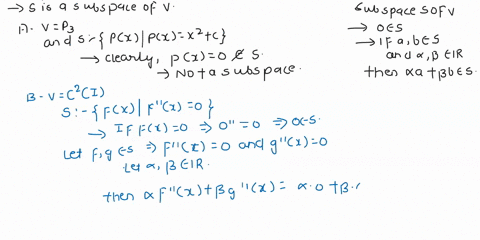 → S is a subspace of V.
A) - V = P₃
and S :- { P(x) | P(x) = x² + c }
→ clearly, p(x) = 0 ∉ S.
→ Not a subspace.
Subspace S of V
→ 0 ∈ S
→ IF a, b ∈ S
and α, β ∈ IR
then αa + βb ∈ S.
B - V = C²(I)
S :- { F(x) | F''(x) = 0 }
→ IF F(x) = 0 ⇒ 0'' = 0 ⇒ 0 ∈ S.
Let f, g ∈ S ⇒ F''(x) = 0 and g''(x) = 0
Let α, β ∈ IR.
then α F''(x) + β g''(x) = α · 0 + β ·